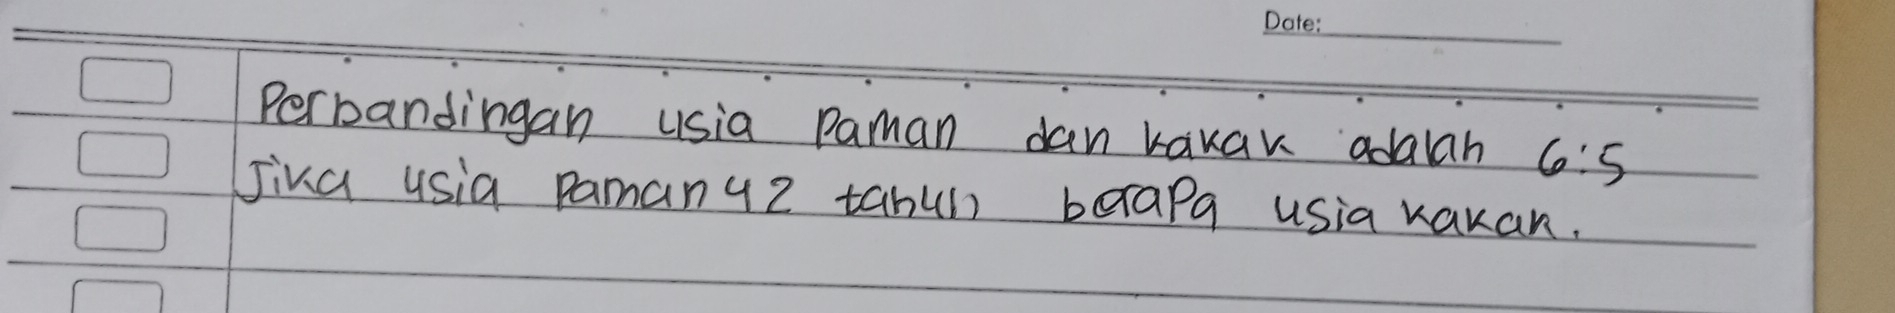 Date:
Perbandingan usia Paman dan kakak adalah 6:5
Jika usia Paman 42 tahun berapa usia kakak.